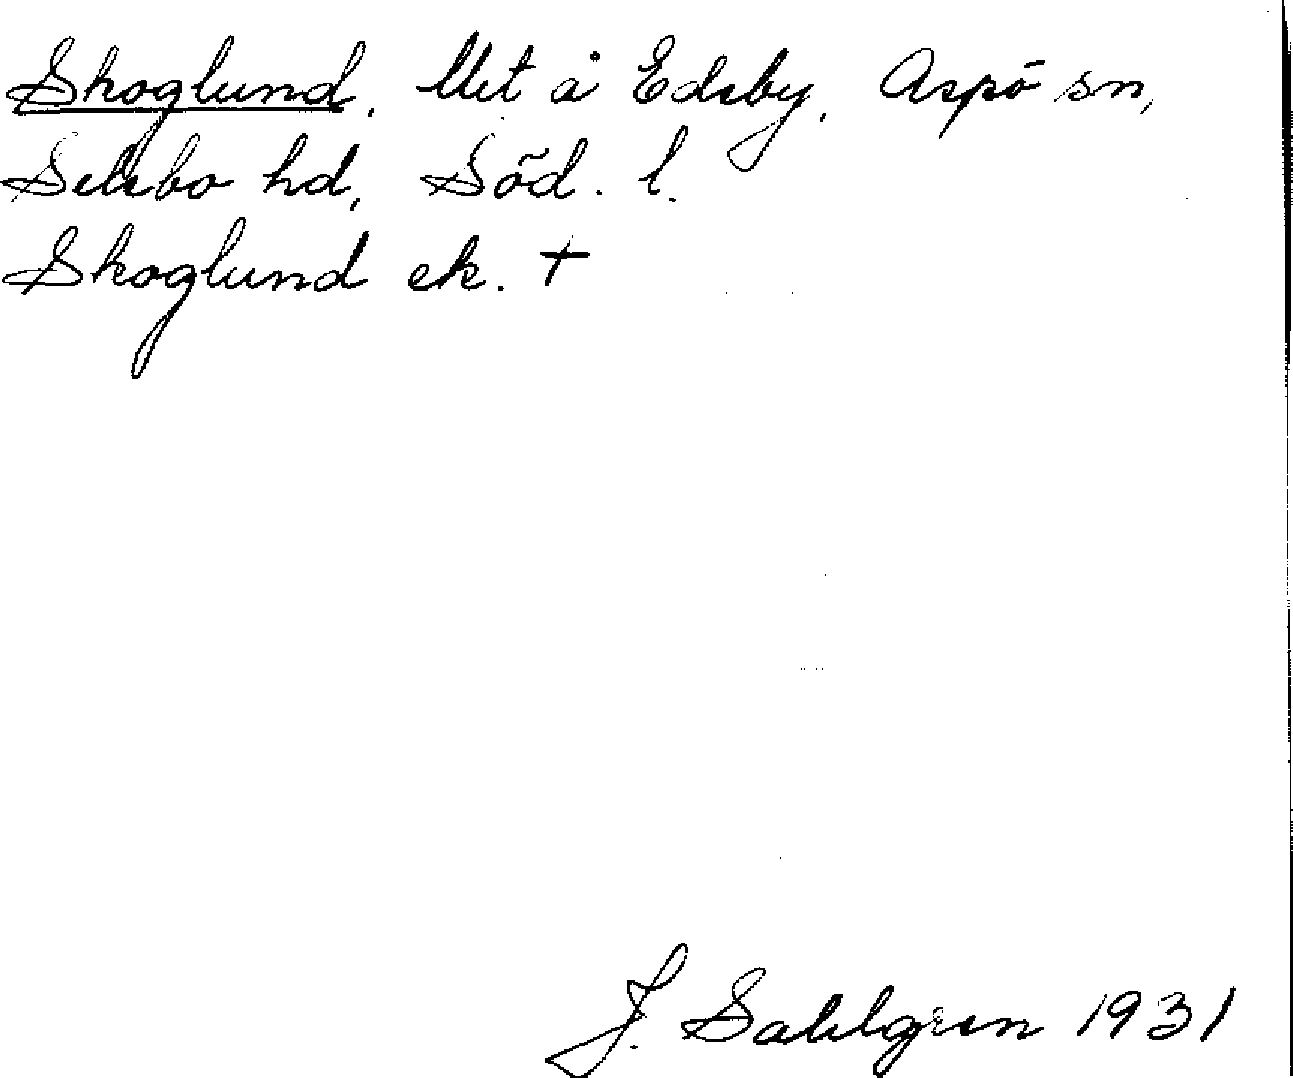 Skoglund, Utit å Edeby, Aspö sn,
Selebo hd, Söd. l.
Skoglund ek. +
J. Sahlgren 1931